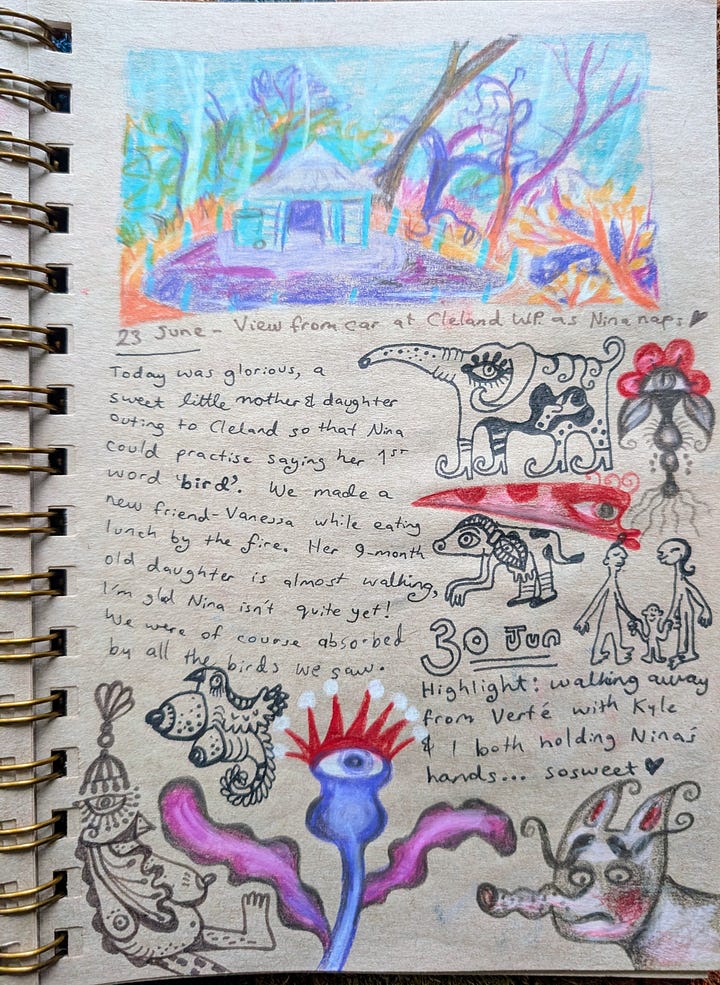 23 June - View from car at Cleland W.P. as Nina naps
Today was glorious, a
sweet little mother & daughter
outing to Cleland so that Nina
could practise saying her 1st
word 'bird'. We made a
new friend-Vanessa while eating
lunch by the fire. Her 9-month
old daughter is almost walking,
I'm glad Nina isn't quite yet!
We were of course absorbed
by all the birds we saw.
30 Jun
Highlight: walking away
from Verté with Kyle
& I both holding Nina's
hands... so sweet